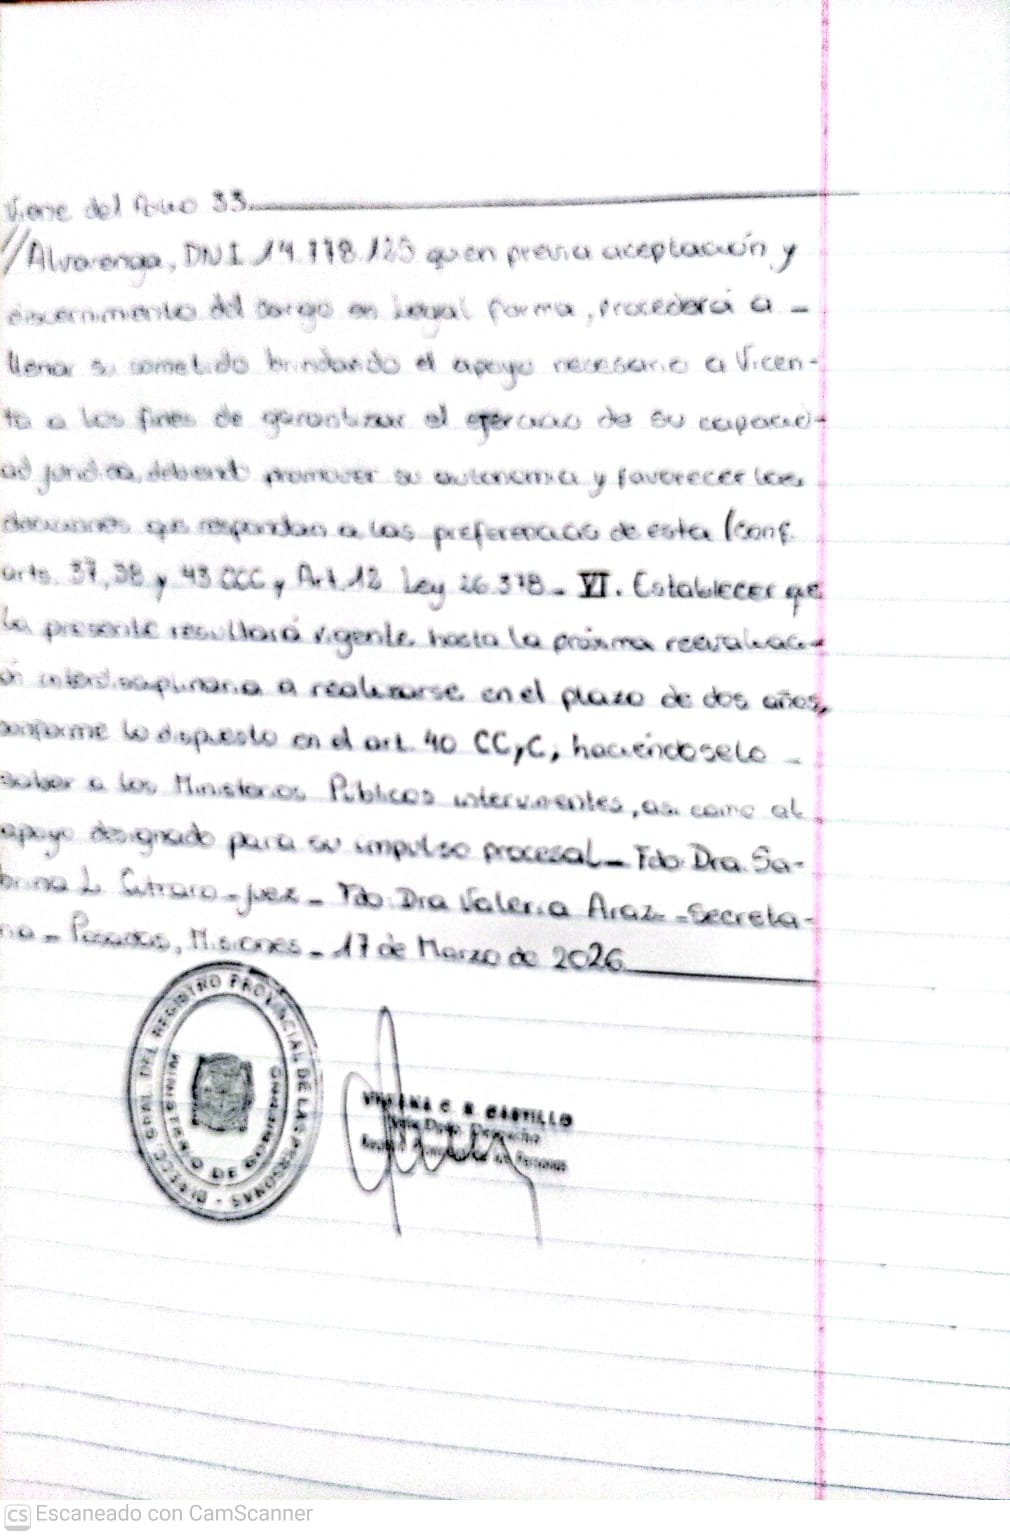 Viene del folio 33
//Alvarenga, DNI 14.778.125 quien previa aceptación y
discernimiento del cargo en Legal forma, procederá a -
llenar su cometido brindando el apoyo necesario a Vicen-
ta a los fines de garantizar el ejercicio de su capacid-
ad jurídica, debiendo promover su autonomía y favorecer las
decisiones que respondan a las preferencias de esta (conf.
arts. 37, 38 y 43 CCC y Art.12 Ley 26.378 - VI. Establecer que
la presente resultará vigente hasta la próxima reevaluaci-
ón interdisciplinaria a realizarse en el plazo de dos años,
conforme lo dispuesto en el art. 40 CCyC, haciéndoselo -
saber a los Ministerios Públicos intervinientes, así como al
apoyo designado para su impulso procesal - Fdo: Dra. Sa-
brina L. - Juez - Fdo: Dra Valeria - Secreta-
ria - Posadas, Misiones - 17 de Marzo de 2026
DIREC. GRAL. DEL REGISTRO PROVINCIAL DE LAS PERSONAS -
MINISTERIO DE GOBIERNO
C. R. CASTILLO
Dpto. Despacho
de las Personas
CS Escaneado con CamScanner